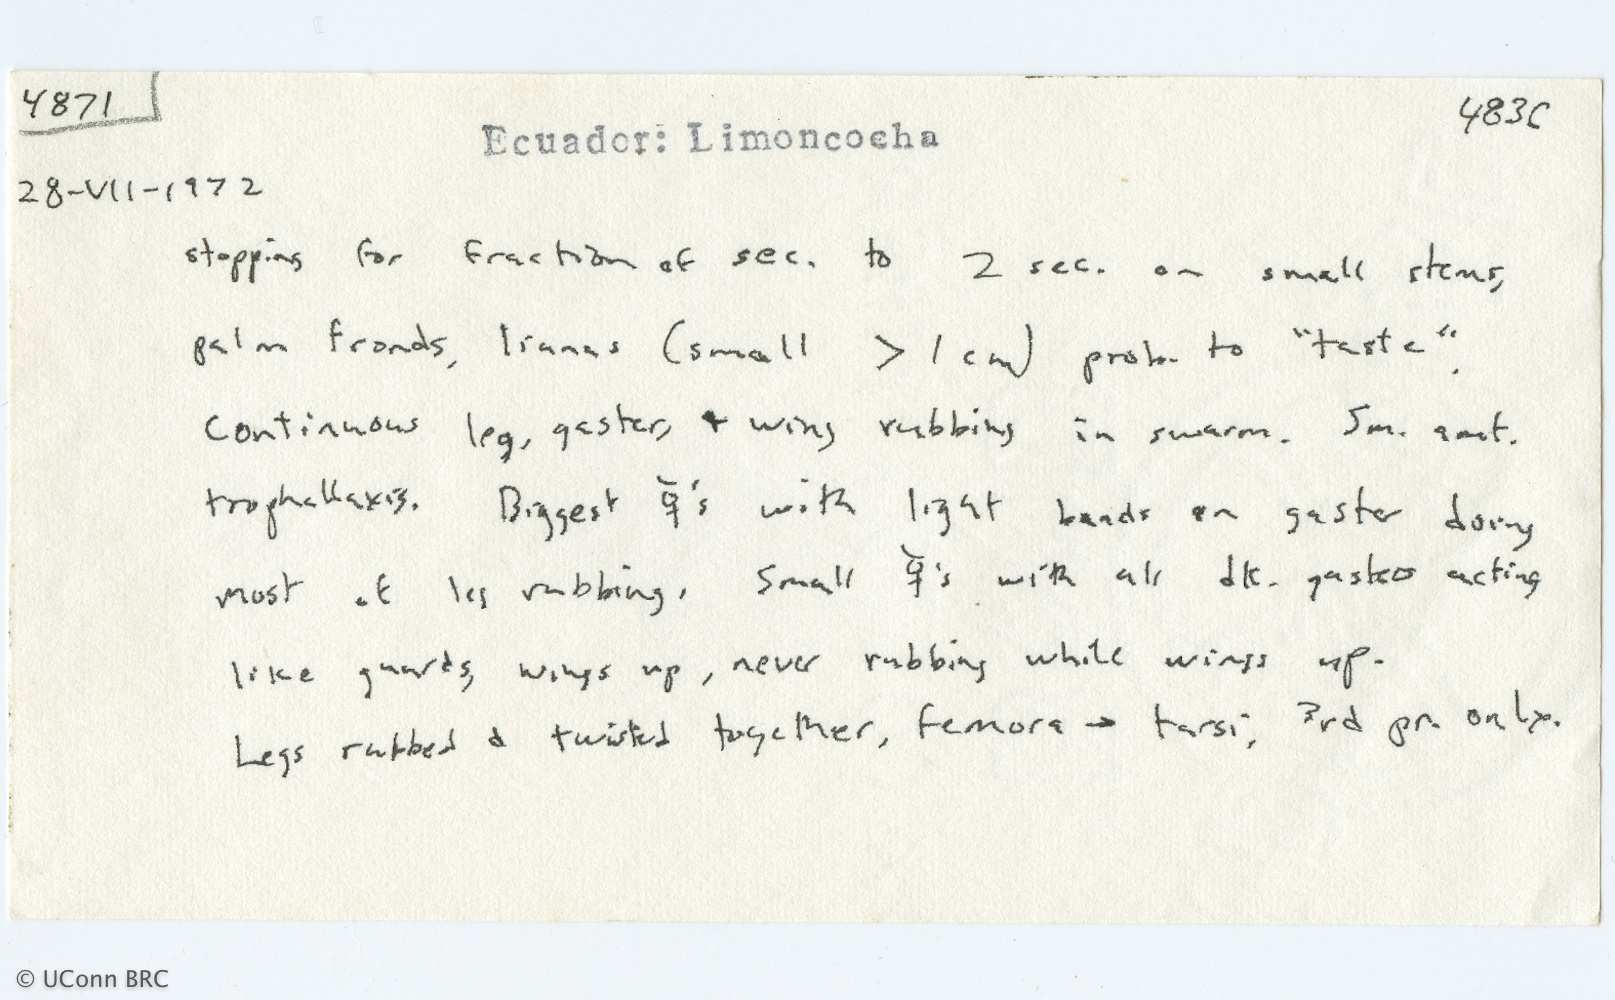 4871
483C
Ecuador: Limoncocha
28-VII-1972
stopping for fraction of sec. to 2 sec. on small stems,
palm fronds, lianas (small > 1 cm) prob. to "taste".
Continuous leg, gaster, + wing rubbing in swarm. Sm. amt.
trophallaxis. Biggest ☿'s with light bands on gaster doing
most of leg rubbing. Small ☿'s with all dk. gaster acting
like guards, wings up, never rubbing while wings up.
Legs rubbed & twisted together, femora → tarsi, 3rd pr. only.
© UConn BRC